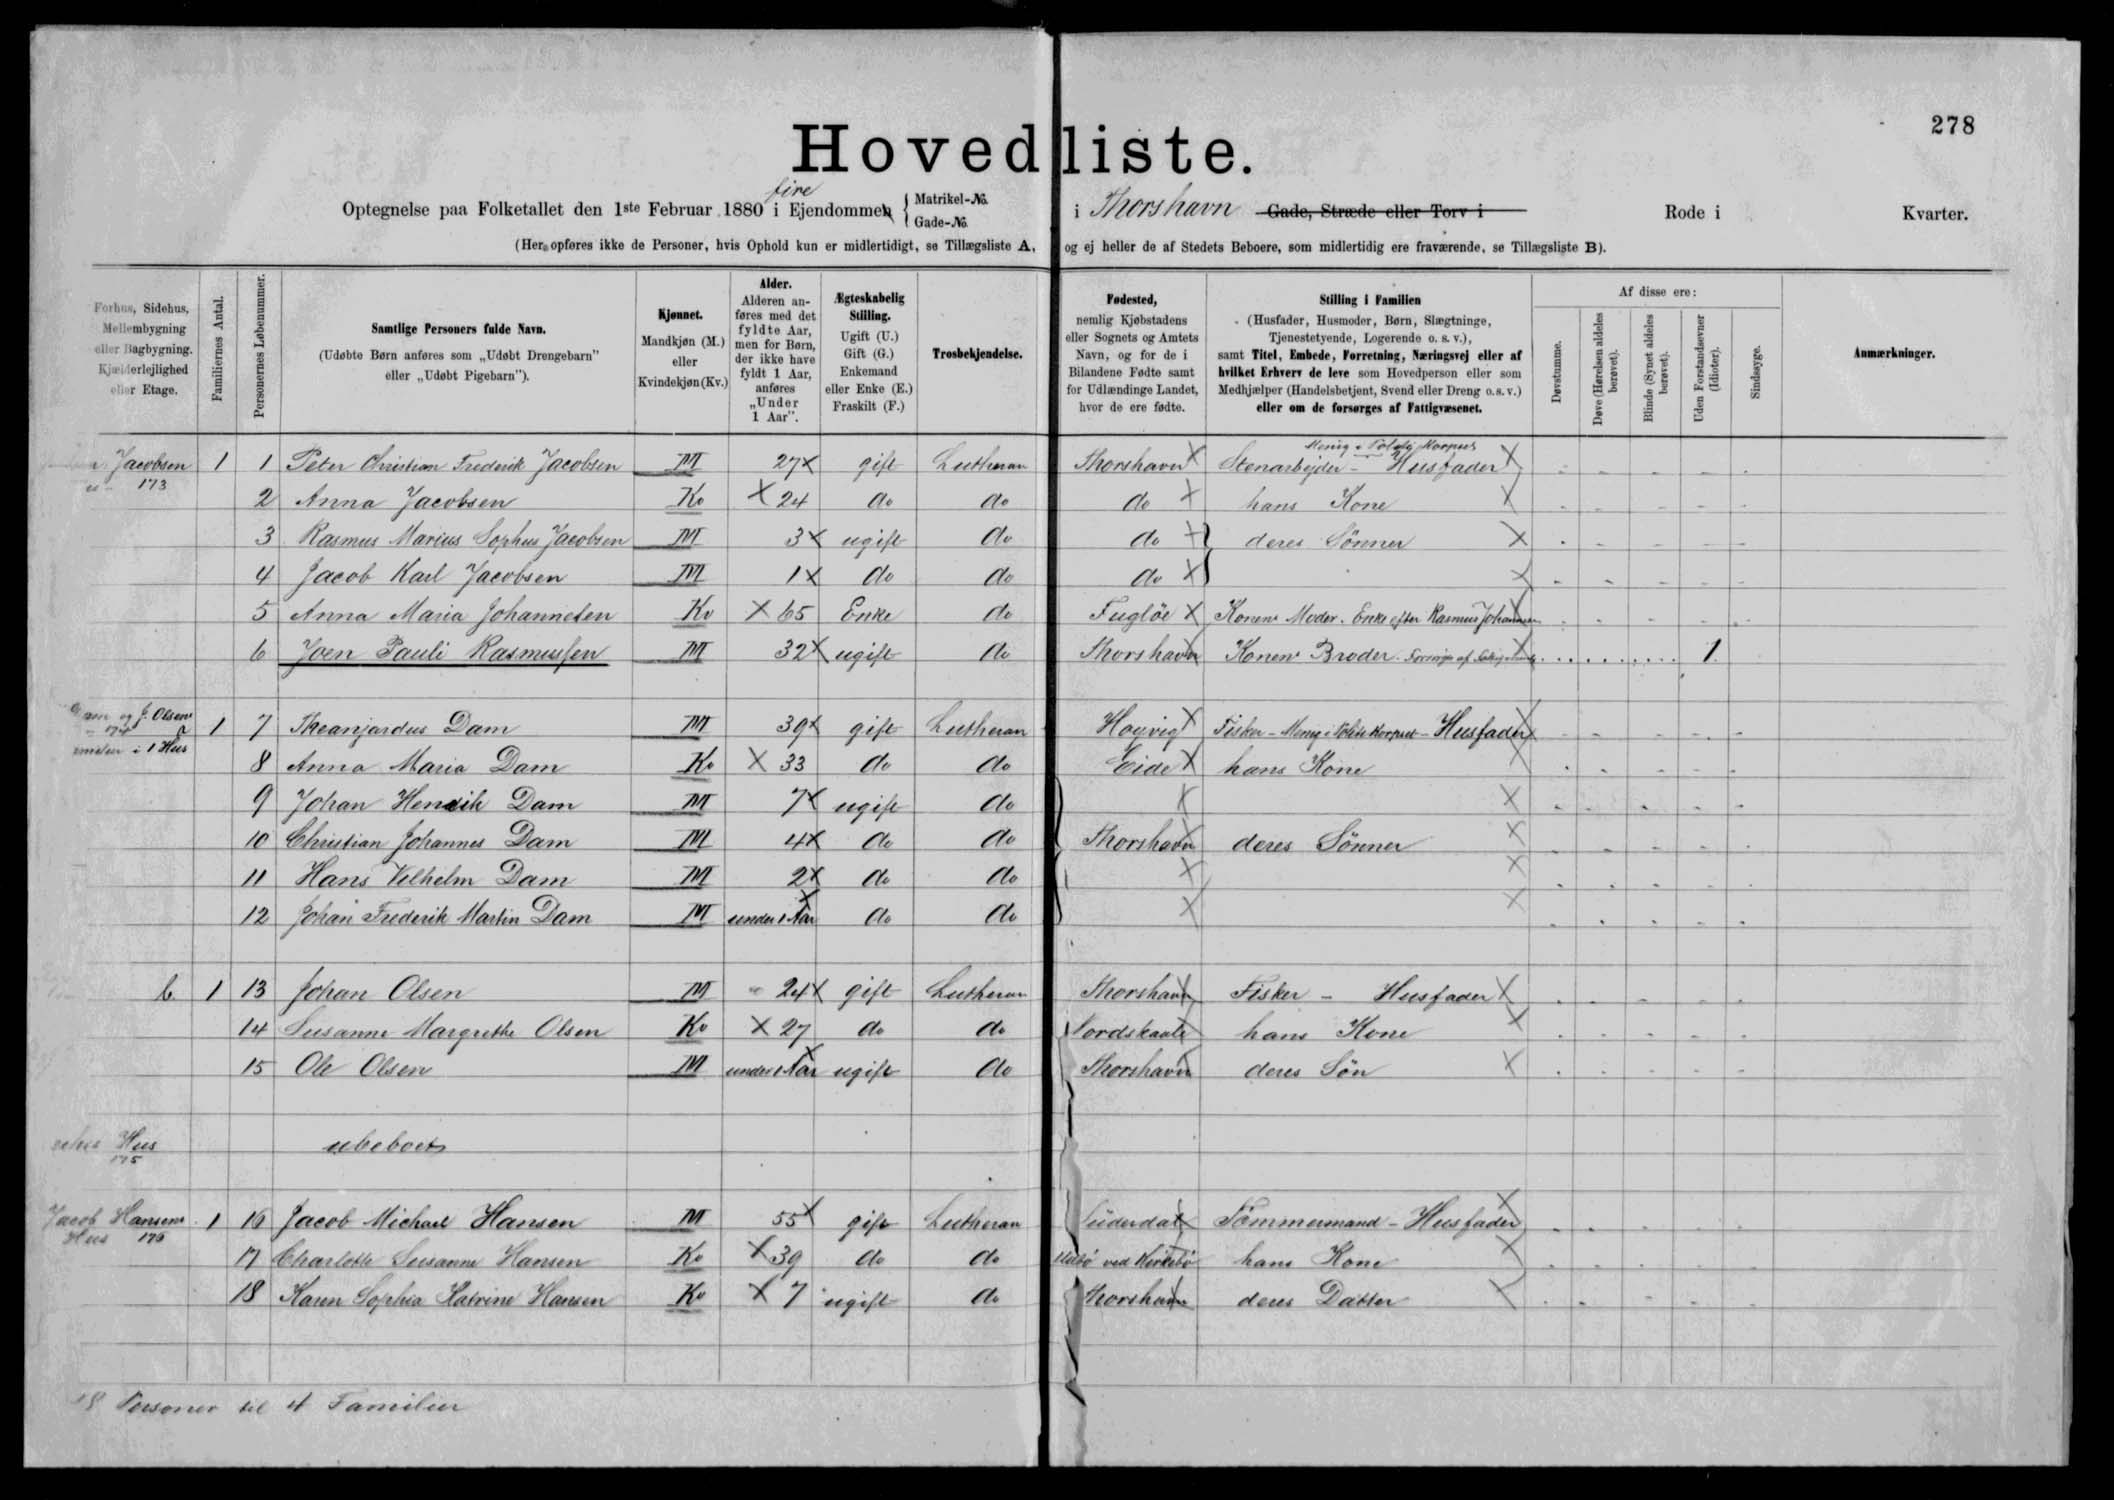 278
Hovedliste.
fire
Optegnelse paa Folketallet den 1ste Februar 1880 i Ejendommen { Matrikel-No. Gade-No. i Thorshavn Gade, Stræde eller Torv i Rode i Kvarter.
(Her opføres ikke de Personer, hvis Ophold kun er midlertidigt, se Tillægsliste A, og ej heller de af Stedets Beboere, som midlertidig ere fraværende, se Tillægsliste B).
Forhus, Sidehus, Mellembygning eller Bagbygning. Kjælderlejlighed eller Etage.
Familiernes Antal.
Personernes Løbenummer.
Samtlige Personers fulde Navn.
(Udøbte Børn anføres som „Udøbt Drengebarn" eller „Udøbt Pigebarn").
Kjønnet.
Mandkjøn (M.) eller Kvindekjøn (Kv.)
Alder.
Alderen anføres med det fyldte Aar, men for Børn, der ikke have fyldt 1 Aar, anføres „Under 1 Aar".
Ægteskabelig Stilling.
Ugift (U.) Gift (G.) Enkemand eller Enke (E.) Fraskilt (F.)
Trosbekjendelse.
Fødested,
nemlig Kjøbstadens eller Sognets og Amtets Navn, og for de i Bilandene Fødte samt for Udlændinge Landet, hvor de ere fødte.
Stilling i Familien
(Husfader, Husmoder, Børn, Slægtninge, Tjenestetyende, Logerende o. s. v.), samt Titel, Embede, Forretning, Næringsvej eller af hvilket Erhverv de leve som Hovedperson eller som Medhjælper (Handelsbetjent, Svend eller Dreng o. s. v.) eller om de forsørges af Fattigvæsenet.
Af disse ere:
Døvstumme.
Døve (Hørelsen aldeles berøvet).
Blinde (Synet aldeles berøvet).
Uden Forstandsevner (Idioter).
Sindssyge.
Anmærkninger.
Menig i Politi Korpset
Jacobsen 1 1 Peter Christian Frederik Jacobsen M 27 x gift Lutheran Thorshavn x Stenarbejder - Husfader x
173
2 Anna Jacobsen Kv x 24 do do do x hans Kone x
3 Rasmus Marius Sophus Jacobsen M 3 x ugift do do x } deres Sönner x
4 Jacob Karl Jacobsen M 1 x do do do x x
5 Anna Maria Johannesen Kv x 65 Enke do Fuglöe x Konens Moder. Enke efter Rasmus Johannesen
6 Joen Pauli Rasmussen M 32 x ugift do Thorshavn Konens Broder. 1
og J. Olsens
174 a 1 7 Skeanjardus Dam M 39 x gift Lutheran Hoyvig x Fisker - Menig i Politi Korpset - Husfader
i 1 Hus
8 Anna Maria Dam Kv x 33 do do Eide x hans Kone x
9 Johan Hendrik Dam M 7 x ugift do x x
10 Christian Johannes Dam M 4 x do do Thorshavn deres Sönner x
11 Hans Vilhelm Dam M 2 x do do x x
12 Johan Frederik Martin Dam M under 1 Aar do do x x
b. 1 13 Johan Olsen M 24 x gift Lutheran Thorshavn Fisker - Husfader x
14 Susanne Margrethe Olsen Kv x 27 do do Nordskaale hans Kone x
15 Ole Olsen M under 1 Aar ugift do Thorshavn deres Sön x
Hus ubeboet
175
Jacob Hansens 1 16 Jacob Michael Hansen M 55 x gift Lutheran Süderdal Tömmermand - Husfader
Hus 176
17 Charlotte Susanne Hansen Kv x 39 do do ved Kirkebö hans Kone x
18 Karen Sophia Katrine Hansen Kv x 7 ugift do Thorshavn deres Datter x
18 Personer til 4 Familier